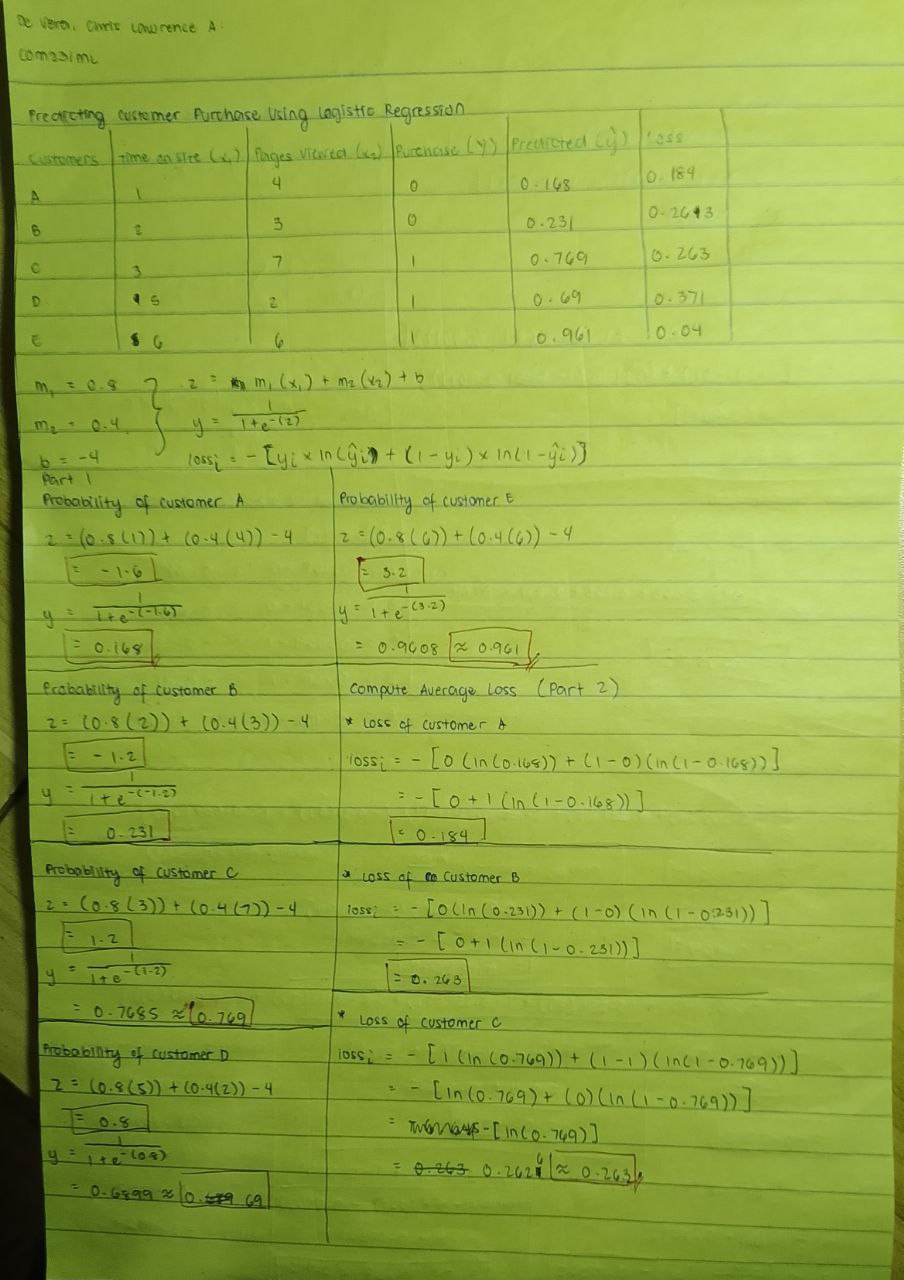 De Vera, Chris Lawrence A.
COM231ML
Predicting Customer Purchase Using Logistic Regression
Customers Time on site (x₁) Pages Viewed (x₂) Purchase (y) Predicted (ŷ) Loss
A 1 4 0 0.168 0.184
B 2 3 0 0.231 0.263
C 3 7 1 0.769 0.263
D 5 2 1 0.69 0.371
E 6 6 1 0.961 0.04
m₁ = 0.8
m₂ = 0.4
b = -4
z = m₁(x₁) + m₂(x₂) + b
y = 1/(1+e^-(z))
lossᵢ = -[yᵢ × ln(ŷᵢ) + (1-yᵢ) × ln(1-ŷᵢ)]
Part 1
Probability of customer A
z = (0.8(1)) + (0.4(4)) - 4
= -1.6
y = 1/(1+e^-(-1.6))
= 0.168
Probability of customer B
z = (0.8(2)) + (0.4(3)) - 4
= -1.2
y = 1/(1+e^-(-1.2))
= 0.231
Probability of customer C
z = (0.8(3)) + (0.4(7)) - 4
= 1.2
y = 1/(1+e^-(1.2))
= 0.7685 ≈ 0.769
Probability of customer D
z = (0.8(5)) + (0.4(2)) - 4
= 0.8
y = 1/(1+e^-(0.8))
= 0.6899 ≈ 0.69
Probability of customer E
z = (0.8(6)) + (0.4(6)) - 4
= 3.2
y = 1/(1+e^-(3.2))
= 0.9608 ≈ 0.961
Compute Average Loss (Part 2)
* Loss of customer A
lossᵢ = -[0(ln(0.168)) + (1-0)(ln(1-0.168))]
= -[0+1(ln(1-0.168))]
= 0.184
* Loss of customer B
lossᵢ = -[0(ln(0.231)) + (1-0)(ln(1-0.231))]
= -[0+1(ln(1-0.231))]
= 0.263
* Loss of customer C
lossᵢ = -[1(ln(0.769)) + (1-1)(ln(1-0.769))]
= -[ln(0.769) + (0)(ln(1-0.769))]
= -[ln(0.769)]
= 0.263 0.2626 ≈ 0.263